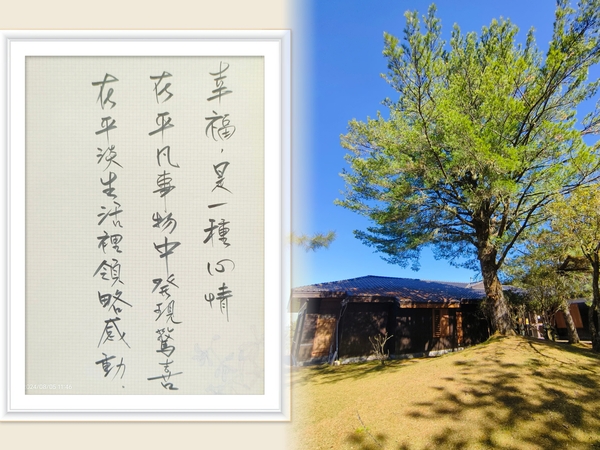 幸福，是一種心情
在平凡事物中發現驚喜
在平淡生活裡領略感動.